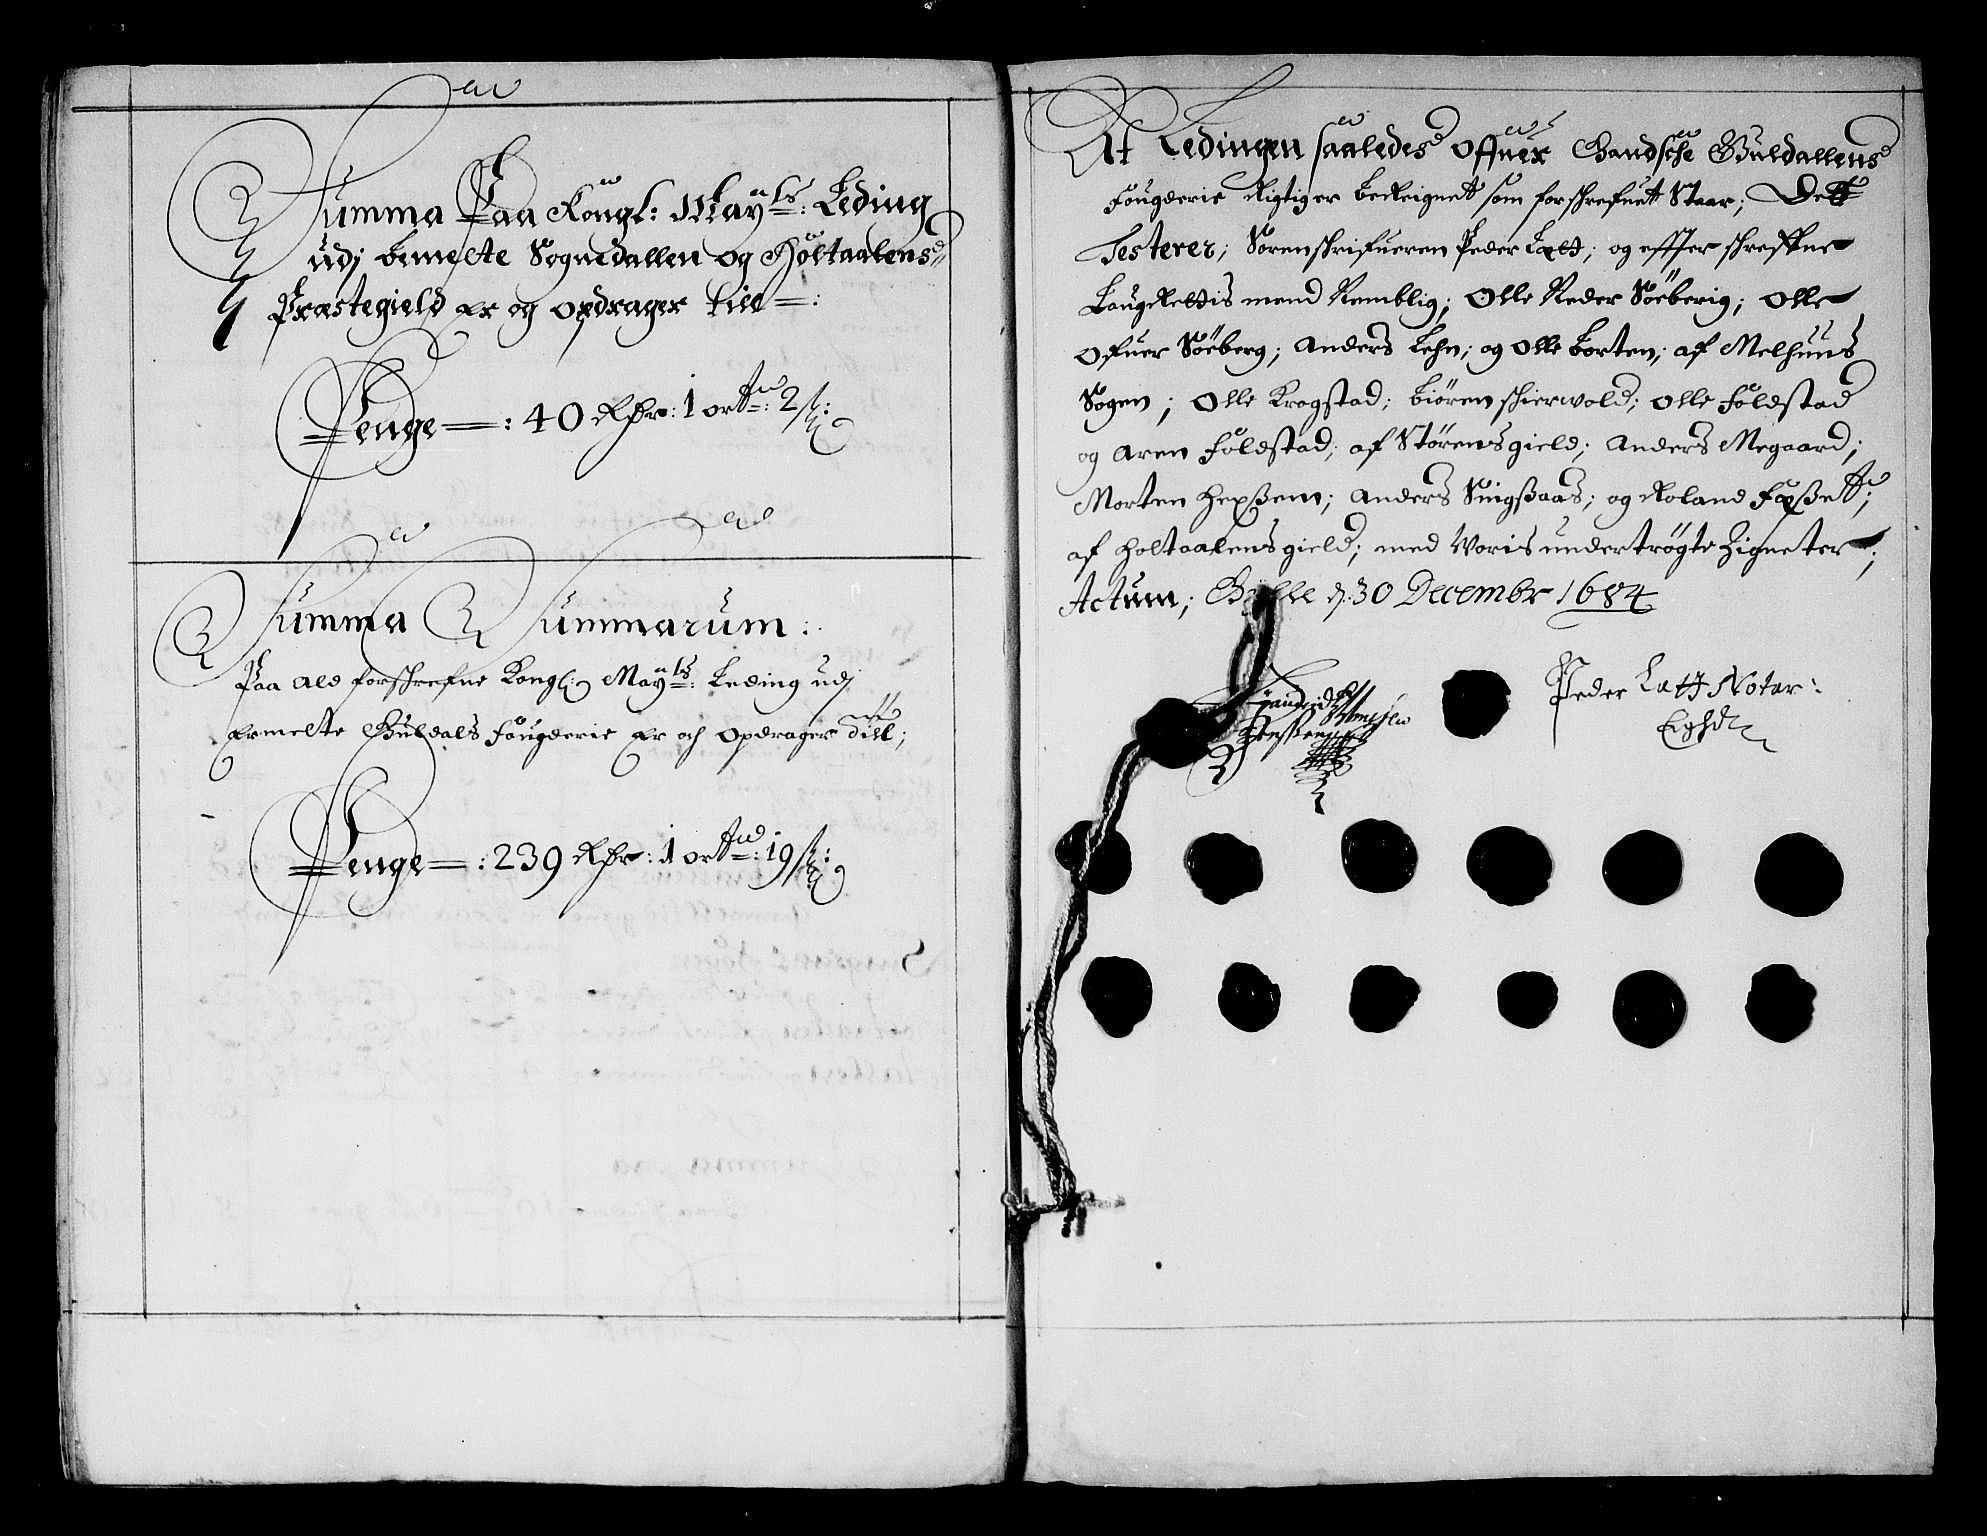 Summa Paa Kongl: May^ts: Leding
udj bemelte Sognedallen og Holtaalens
Præstegield er og opdrager till =:
Penge =: 40 Rdr: 1 ort: 2 s:
Summa Summarum:
Paa ald forschrefne Kongl: May^ts: Leding udj
Ermelte Guldals Fougderie er och opdrager till;
Penge =: 239 Rdr: 1 ort: 19 s:
At Ledingen saaledes offuer Gandsche Guldallens
Fougderie Rigtig er beReignet som forschrefuet Staar; Dett
Testerer; Sorenskrifueren Peder Latt; og effter schreffne
LaugRettis mend Remblig; Olle Neder Söeberig; Olle
Ofuer Söeberg; Anders Lehn; og Olle Borten; af Melhuus
Sogen; Olle Krogstad; Biören schierwold; Olle Foldstad
og Aren Foldstad; af Störens gield; Anders Megaard;
Morten Hexßem; Anders Singsaas; og Roland Foxßett;
af Holtaalens gield; med Woris undertrögte Zigneter;
Actum; d. 30 Decembr 1684
Peder Latt Notar:
Eghd